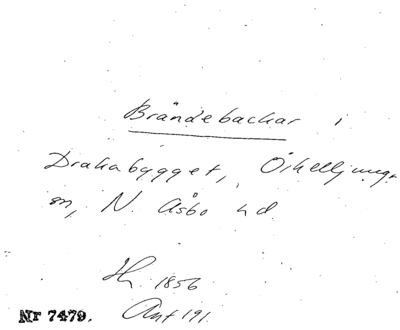 Brändebackar i
Drakabygget, Örkelljunga
sn, N. Åsbo hd.
Hr. 1856
Nr 7479. Ant 191.